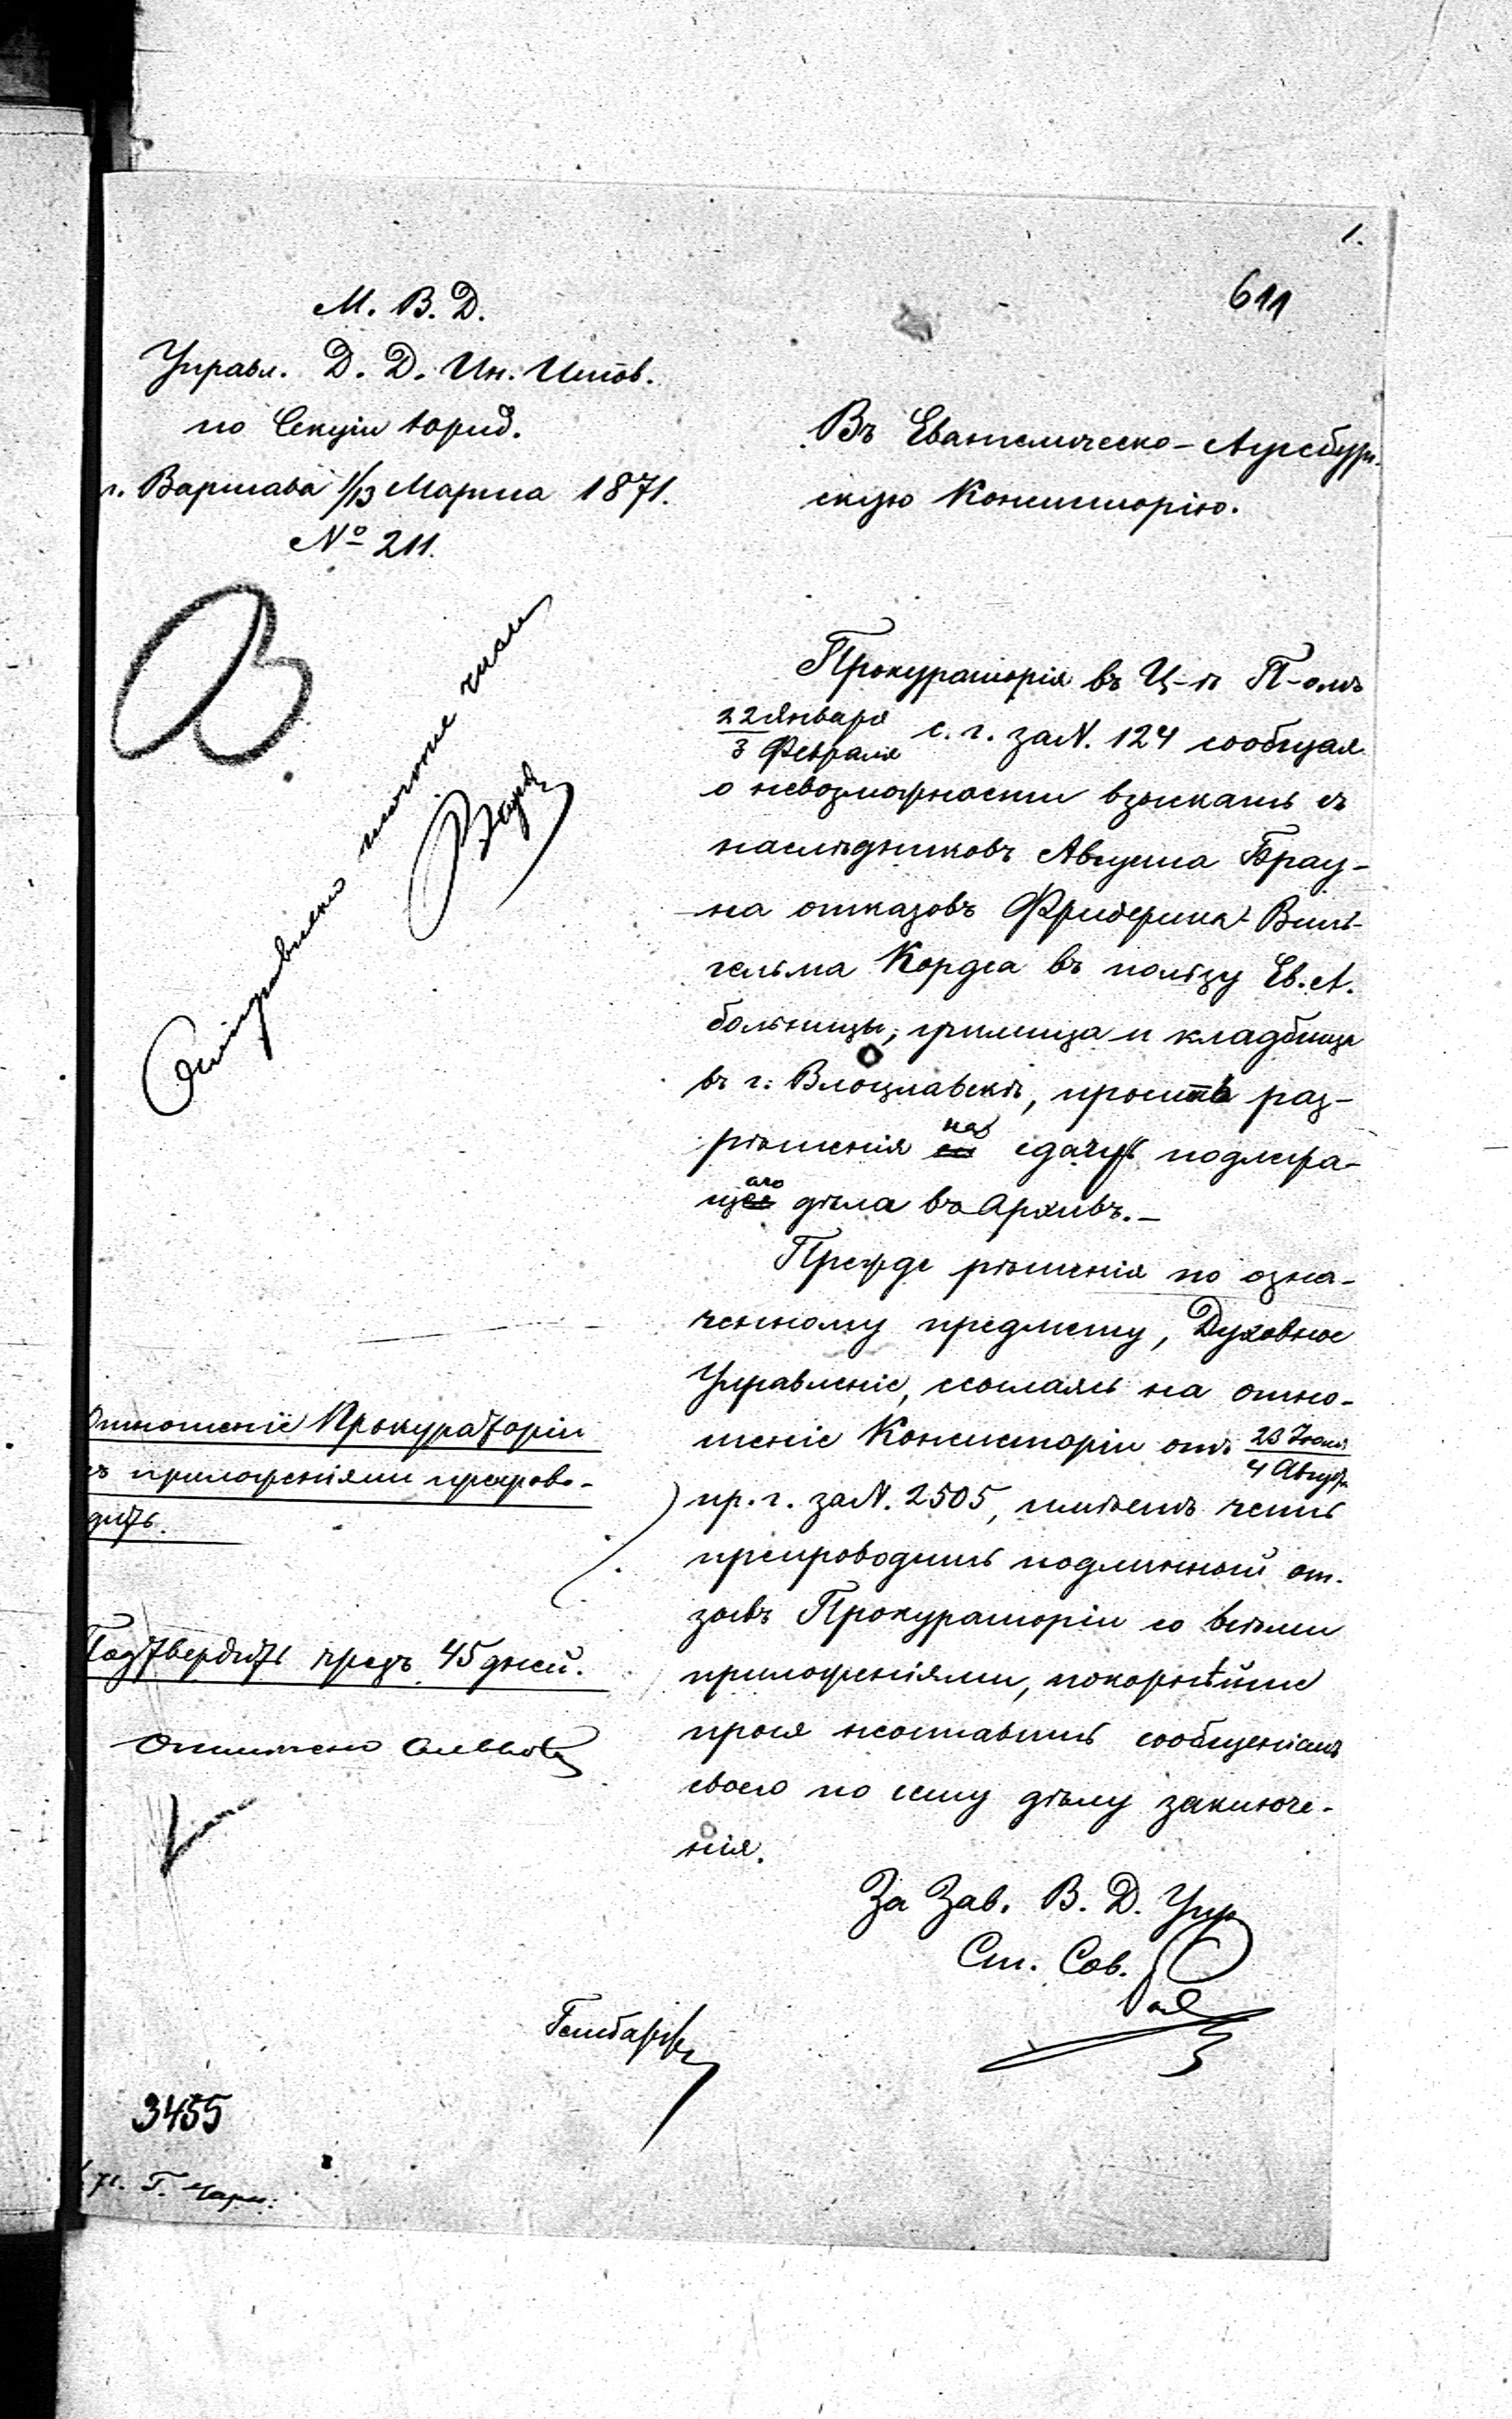 1.
611
М. В. Д.
Управл. Д. Д. Ин. Испов.
по Секціи юрид.
г. Варшава 1/13 Марта 1871.
№ 211.
Въ Евангелическо-Аугсбург-
скую Консисторію.
Отправлено того же числа
Прокураторія въ Ц-ѣ П-омъ
22 Января
3 Февраля с. г. за N. 124 сообщая
о невозможности взыскать съ
наслѣдниковъ Августа Брау-
на отказовъ Фридерика-Виль-
гельма Кордса въ пользу Ев. А.
больницы, училища и кладбища
въ г. Влоцлавскѣ, проситъ раз-
рѣшенія на сдачу подлежа-
щаго дѣла въ Архивъ.—
Прежде рѣшенія по озна-
ченному предмету, Духовное
Управленіе, ссылаясь на отно-
шеніе Консисторіи отъ 23 Іюля
4 Августа
пр. г. за N. 2505, имѣетъ честь
препроводить подлинный от-
зывъ Прокураторіи со всѣми
приложеніями, покорнѣйше
прося неоставить сообщеніемъ
своего по сему дѣлу заключе-
нія.
Отношеніе Прокураторіи
съ приложеніями препрово-
дить.
Подтвердить чрезъ 45 дней.
За Зав. В. Д. Упр
Ст. Сов.
3455
71. Г. Марш: